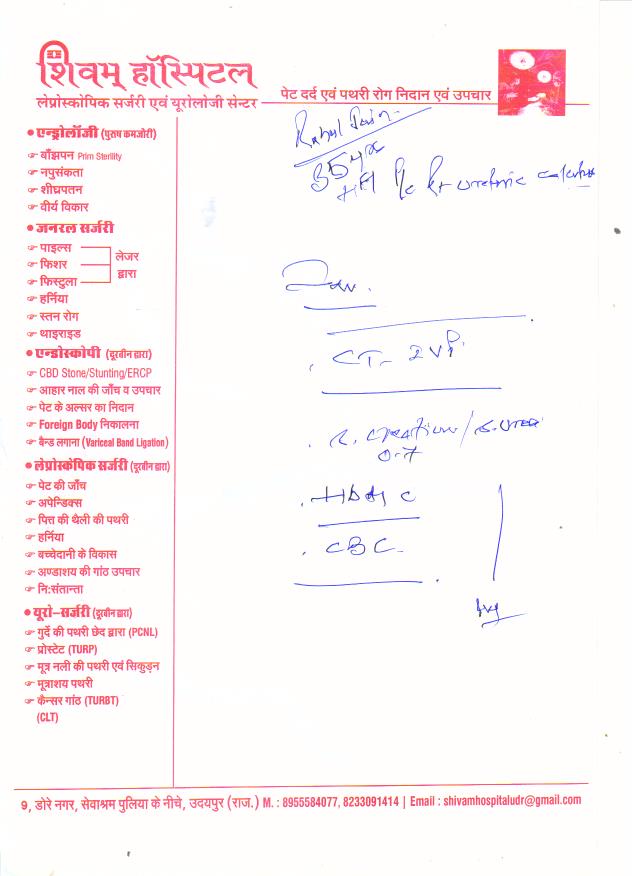 शिवम् हॉस्पिटल
लेप्रोस्कोपिक सर्जरी एवं यूरोलोजी सेन्टर
पेट दर्द एवं पथरी रोग निदान एवं उपचार
Rahul Jain
35 yr
ureteric calculus
• एन्ड्रोलॉजी (पुरुष कमजोरी)
बाँझपन Prim Sterility
नपुसंकता
शीघ्रपतन
वीर्य विकार
• जनरल सर्जरी
पाइल्स
फिशर
फिस्टुला
लेजर
द्वारा
हर्निया
स्तन रोग
थाइराइड
• एन्डोस्कोपी (दूरबीन द्वारा)
CBD Stone/Stunting/ERCP
आहार नाल की जाँच व उपचार
पेट के अल्सर का निदान
Foreign Body निकालना
बैन्ड लगाना (Variceal Band Ligation)
• लेप्रोस्कोपिक सर्जरी (दूरबीन द्वारा)
पेट की जाँच
अपेन्डिक्स
पित्त की थैली की पथरी
हर्निया
बच्चेदानी के विकास
अण्डाशय की गांठ उपचार
नि:संतान्ता
• यूरो-सर्जरी (दूरबीन द्वारा)
गुर्दे की पथरी छेद द्वारा (PCNL)
प्रोस्टेट (TURP)
मूत्र नली की पथरी एवं सिकुड़न
मूत्राशय पथरी
कैन्सर गांठ (TURBT)
(CLT)
CT-
HbA1c
CBC
9, डोरे नगर, सेवाश्रम पुलिया के नीचे, उदयपुर (राज.) M. : 8955584077, 8233091414 | Email : shivamhospitaludr@gmail.com